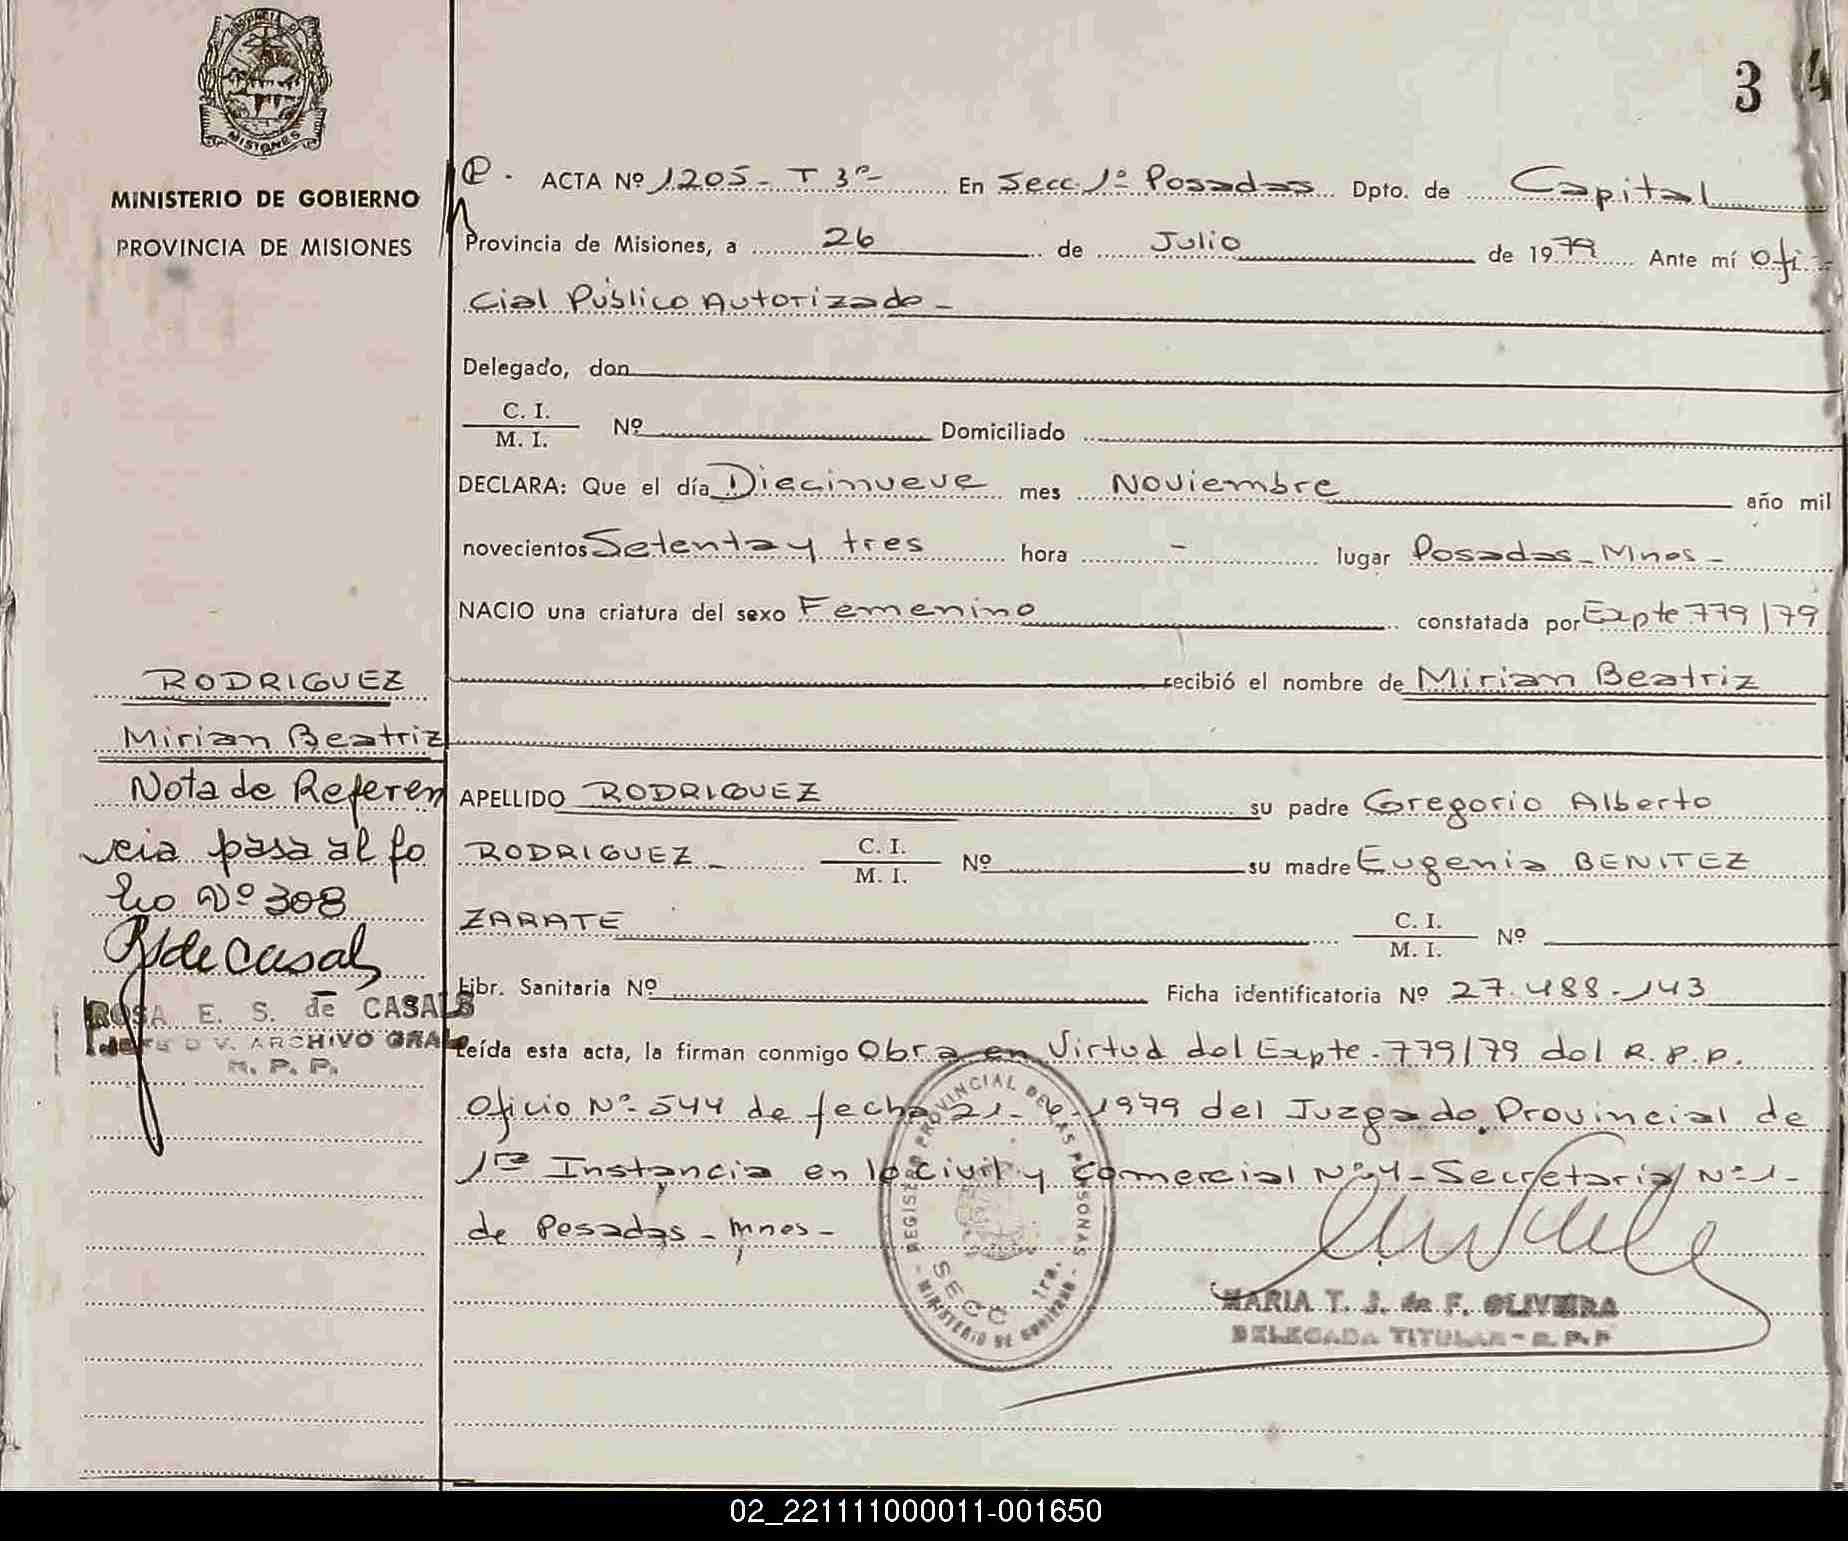 PROVINCIA DE
MISIONES
MINISTERIO DE GOBIERNO
PROVINCIA DE MISIONES
3 4
P. ACTA Nº 1205 - T 3º - En Secc. 1º Posadas Dpto. de Capital
Provincia de Misiones, a 26 de Julio de 1979 Ante mí Ofi-
cial Público Autorizado -
Delegado, don
C. I.
M. I. Nº Domiciliado
DECLARA: Que el día Diecinueve mes Noviembre año mil
novecientos Setenta y tres hora - lugar Posadas - Mnes -
NACIO una criatura del sexo Femenino constatada por Expte 779/79
recibió el nombre de Mirian Beatriz
APELLIDO RODRIGUEZ su padre Gregorio Alberto
RODRIGUEZ - C. I.
M. I. Nº su madre Eugenia BENITEZ
ZARATE C. I.
M. I. Nº
Libr. Sanitaria Nº Ficha identificatoria Nº 27.488.143
Leída esta acta, la firman conmigo Obra en Virtud del Expte. 779/79 del R.P.P.
Oficio Nº 544 de fecha 21-6-1979 del Juzgado Provincial de
1ra Instancia en lo civil y Comercial Nº 4 - Secretaria Nº 1 -
de Posadas - Mnes -
REGISTRO PROVINCIAL DE LAS PERSONAS
- MINISTERIO DE GOBIERNO -
SECC 1ra.
MARIA T. J. de F. OLIVEIRA
DELEGADA TITULAR - R. P. P
RODRIGUEZ
Mirian Beatriz
Nota de Referen
cia pasa al fo
lio Nº 308
R de Casals
ROSA E. S. de CASALS
JEFE DIV. ARCHIVO GRAL
R. P. P.
02_221111000011-001650